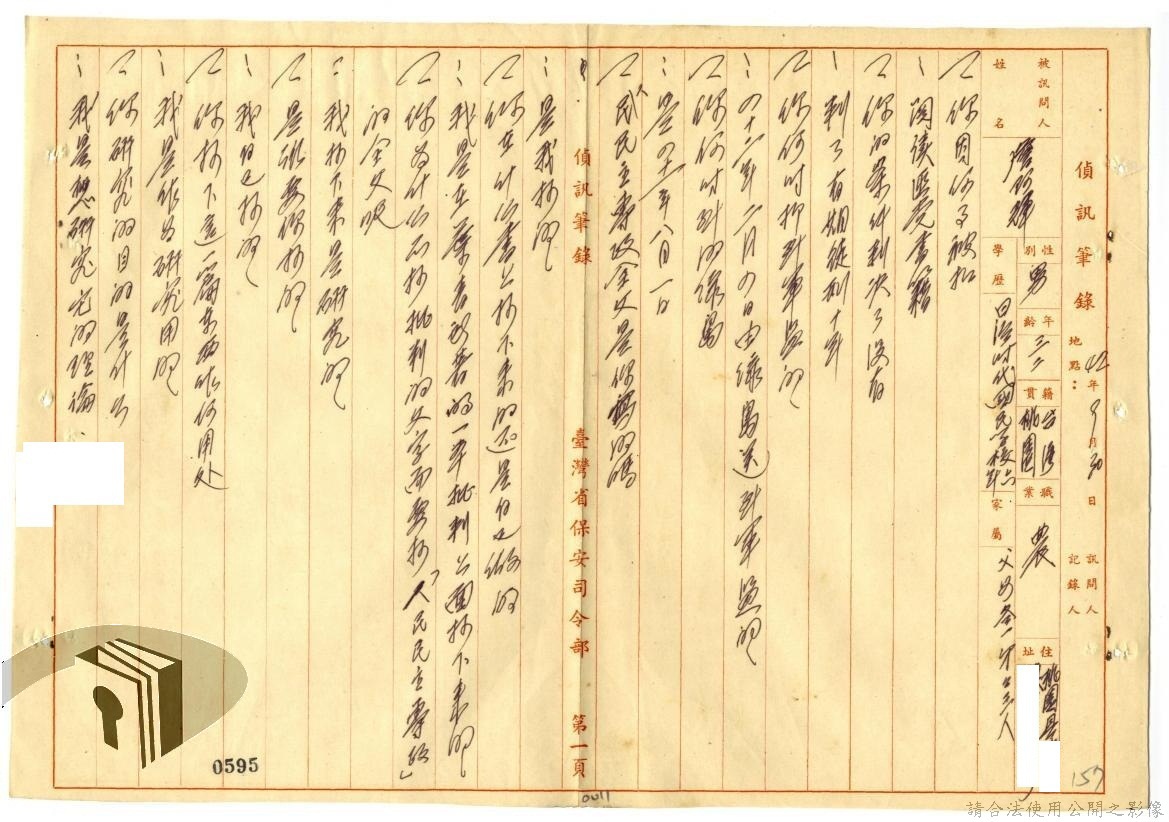 偵訊筆錄
42年9月30日
地點：
訊問人
記錄人
被訊問人
姓名
性別 男
年齡 三二
籍貫 台灣桃園
職業 農
住址 桃園縣
學歷 日治時代國民學校六年
家屬 父母各一弟二
你因何事被扣
閱讀匪党書籍
你的案件判决了沒有
判了有期徒刑十年
你何时押到軍監的
四十二年二月四日由綠島送到軍監的
你何时到的綠島
是四十一年八月一日
人民民主專政全文是你寫的嗎
是我抄的
你在什么書上抄下來的还是自己做的
我是在蔡青爺看的一本批判上面抄下來的
你为什么不抄批判的文字而要抄「人民民主專政」
的全文呢
我抄下來是研究的
是誰要你抄的
我自己抄的
你抄下這一篇東西作何用处
我是作为研究用的
你研究的目的是什么
我是想研究它的理論
偵訊筆錄
臺灣省保安司令部
第一頁
0595
0011
157
請合法使用公開之影像